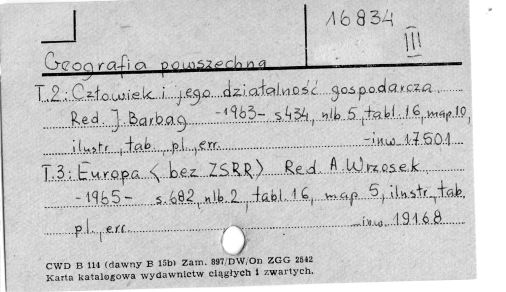 16834
III
Geografia powszechna
T.2: Człowiek i jego działalność gospodarcza.
Red. J. Barbag -1963- s.434, nlb.5, tabl.16, map.10,
ilustr., tab., pl., err. -inw 17501
T.3: Europa < bez ZSRR> Red. A. Wrzosek
-1965- s.682, nlb.2, tabl.16, map 5, ilustr., tab.
pl., err. -inw 19168
CWD B 114 (dawny B 15b) Zam. 897/DW/On ZGG 2542
Karta katalogowa wydawnictw ciągłych i zwartych.